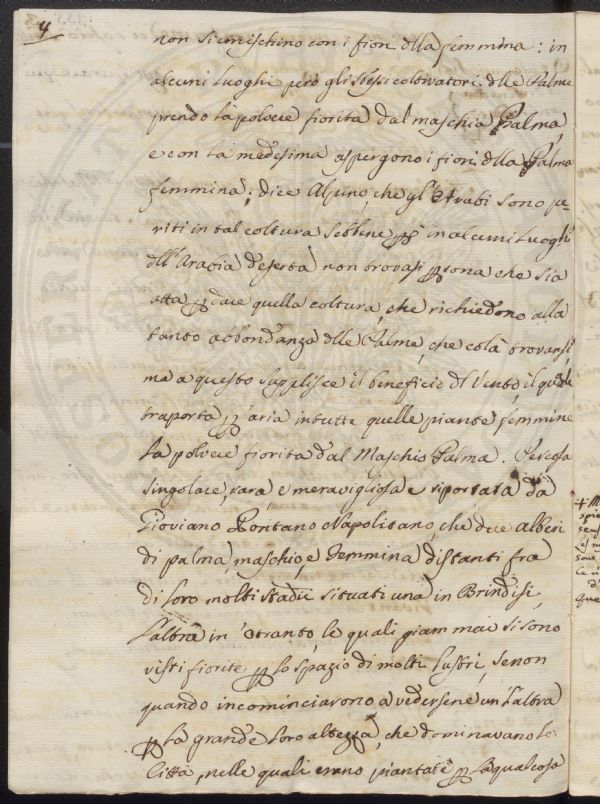 4
non si mischino con i fiori dlla femmina: in
alcuni Luoghi però gli stessi coltivatori dlle Palme
prendo la polvere fiorita dal maschia Palma,
e con la medesima aspergono i fiori dlla Palma
femmina; dice Alpino, che gl'Arabi sono pe-
riti in tal coltura sebbene in alcuni Luoghi
dll'Arabia deserta non trovasi sona che sia
atta dare quella coltura, che richiedono alla
tanto abbondanza dlle Palme, che colà trovansi
ma a questo supplisce il beneficio dl Vento, il quale
traporta aria in tutte quelle piante femmine
la polvere fiorita dal Maschio Palma. Per cosa
singolare, rara, e meravigliosa e riportata da
Gioviano Pontano Napolitano, che due alberi
di palma maschio, e Femmina distanti fra
di Loro molti stadii situati una in Brindisi,
L'altra in Otranto, le quali giam mai si sono
visti fiorite Lo spazio di molti lustri, se non
quando incominciarono a vedersene un L'altra
La grande Loro altezza, che dominavano le
Città, nelle quali erano piantate La qual cosa